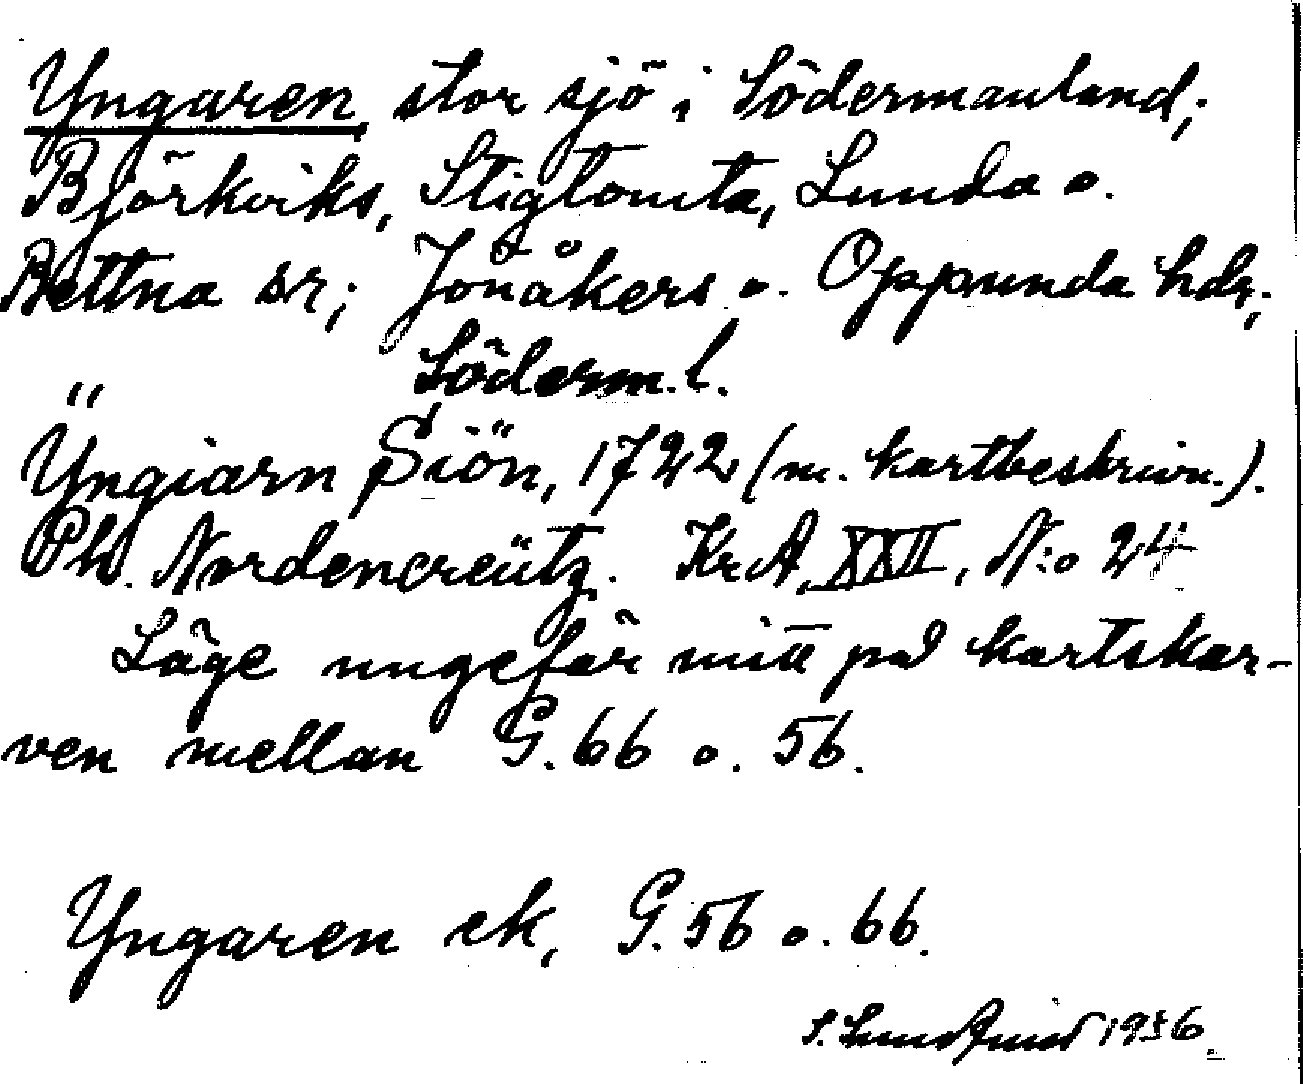 Yngaren, stor sjö i Södermanland;
Björkviks, Stigtomta, Lunda o.
Bettna sr; Jönåkers o. Oppunda hdr,
Söderm. l.
Ÿngiarn Siön, 1722 (m. kartbeskrivn.).
Ph. Nordencreütz. KrA, XXII, N:o 24
Läge ungefär mitt på kartskar-
ven mellan G. 66 o. 56.
Yngaren ek, G. 56 o. 66.
S. 1956